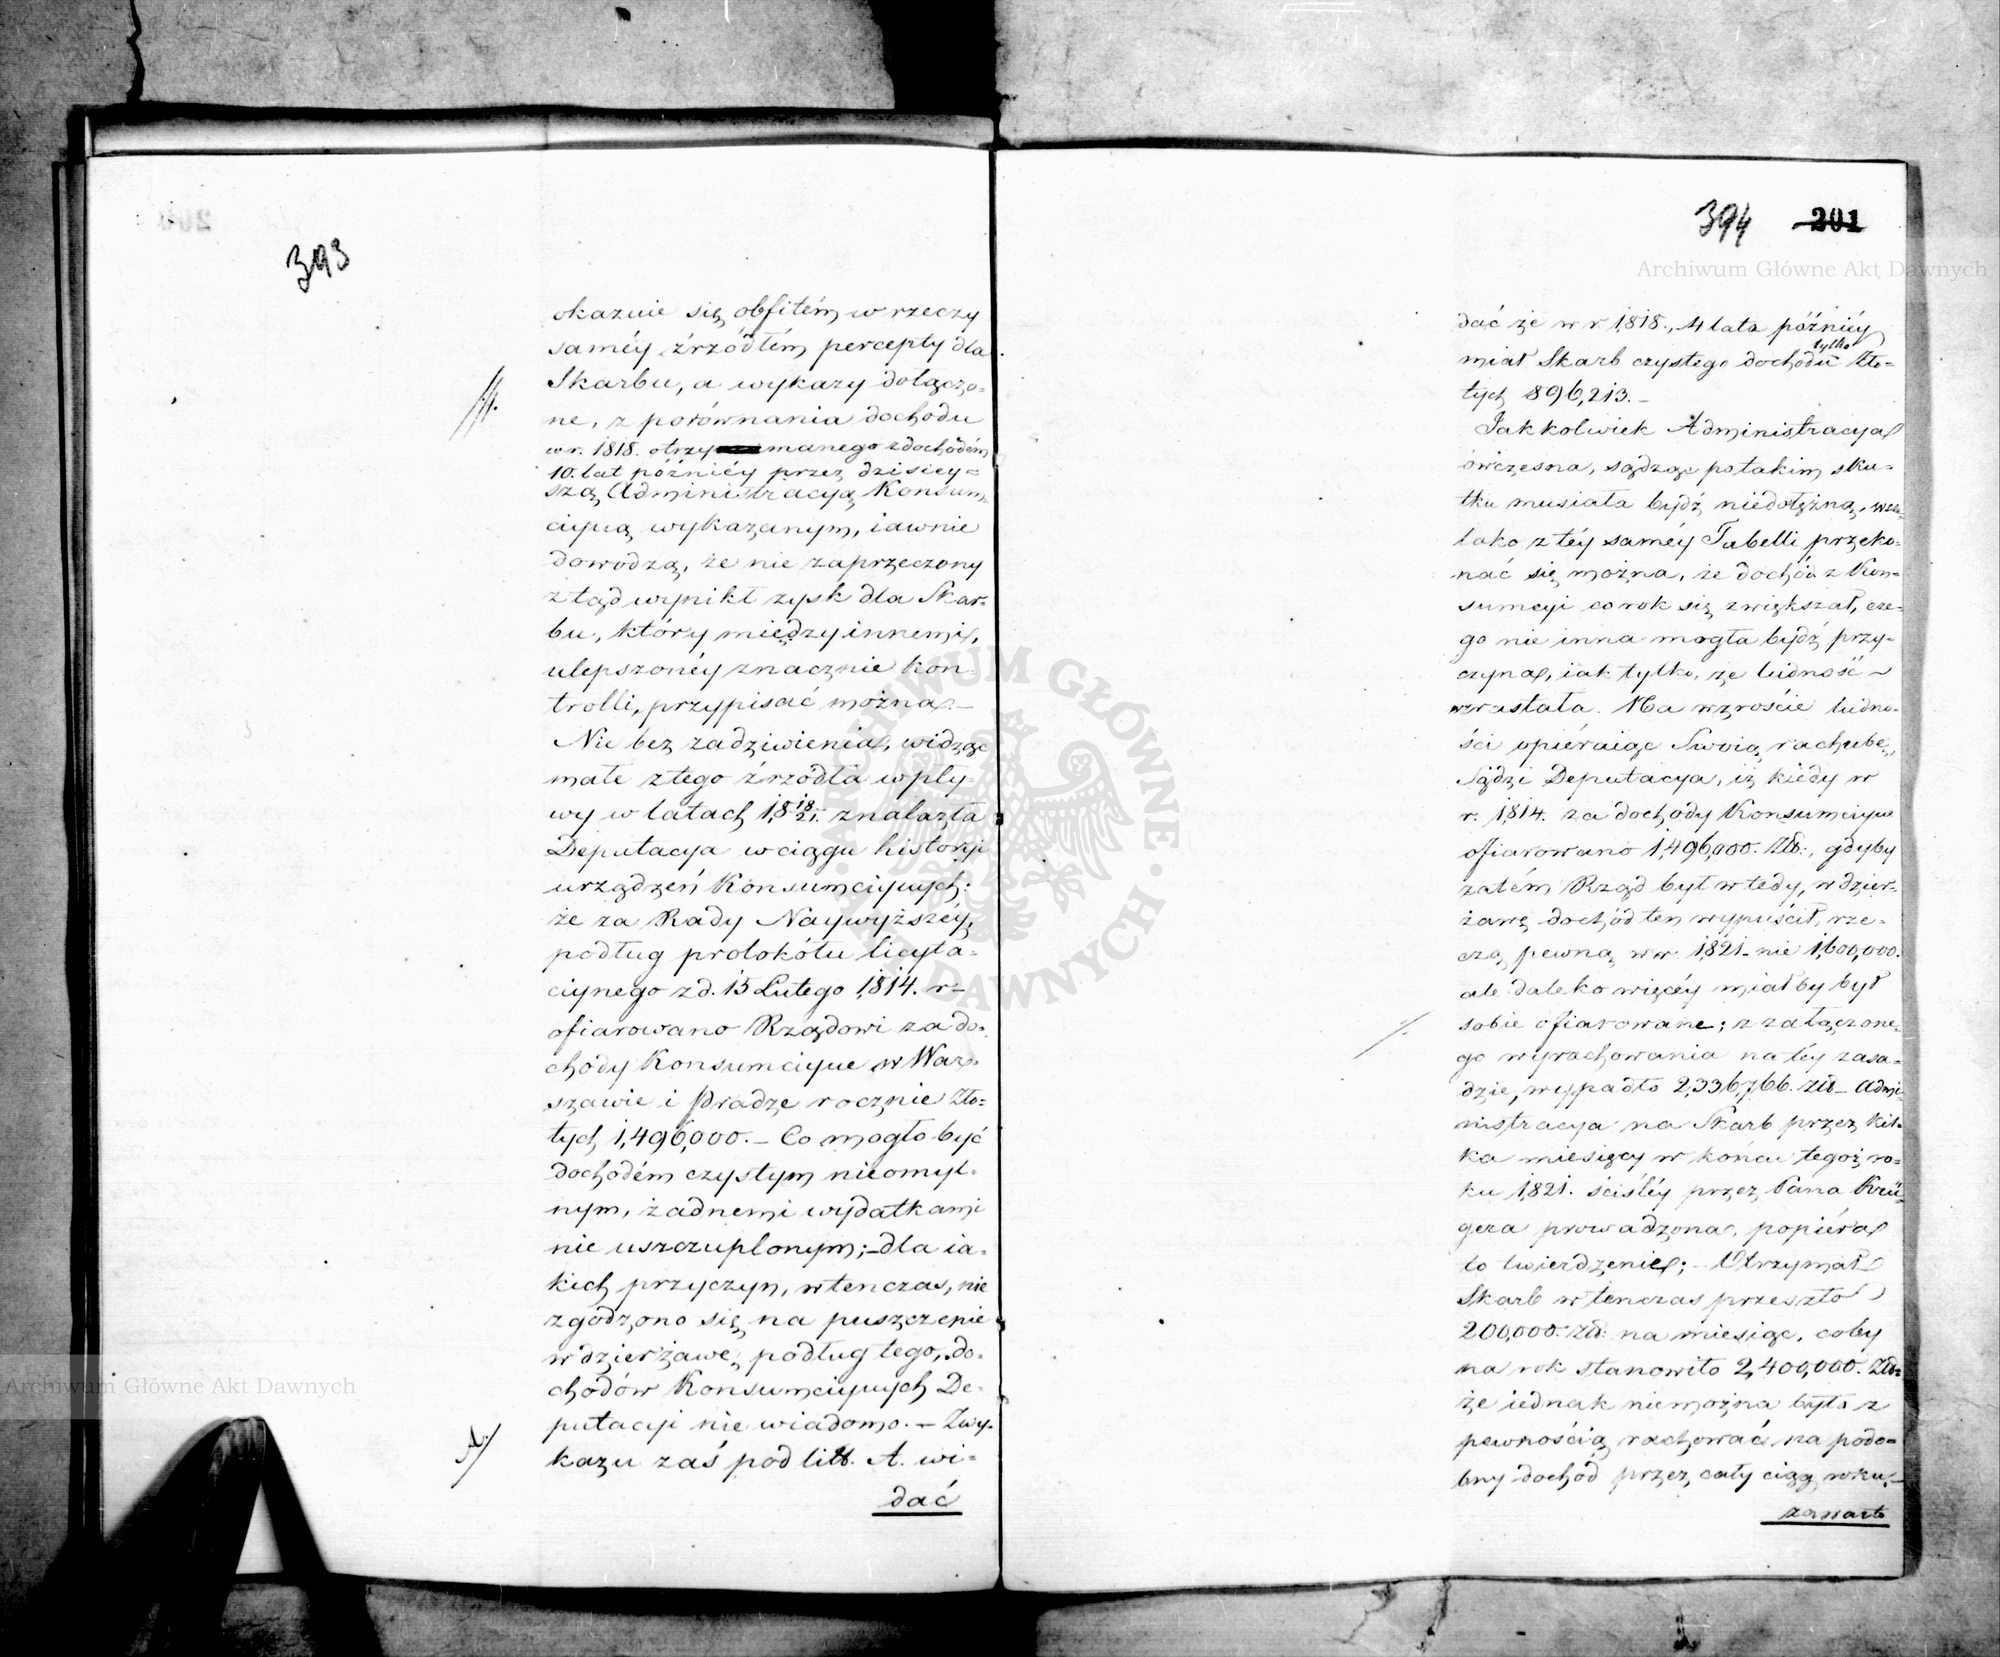 393
okazuie się obfitém w rzeczy
saméy źrzódłém percepty dla
Skarbu, a wykazy dołączo=
ne, z porównania dochodu
w r. 1818. otrzymanego z dochodém
10. lat późniéy przez dzisiey=
szą Administracyą Konsum=
cyiną wykazanym, iawnie
dowodzą, że nie zaprzeczony
ztąd wynikł zysk dla Skar=
bu, który między innemi,
ulepszonéy znacznie kon=
trolli, przypisać można.—
Nie bez zadziwienia, widząc
małe z tego źrzódła wpły=
wy w latach 18 18/21. znalazła
Deputacya w ciągu historyi
urządzeń Konsumcyinych:
że za Rady Naywyższéy,
podług protokółu licyta=
cyinego z d. 15 Lutego 1814. r—
ofiarowano Rządowi za do=
chody Konsumcyine w War=
szawie i Pradze rocznie Zło=
tych 1,496,000.— Co mogło być
dochodém czystym nieomyl=
nym, żadnemi wydatkami
nie uszczuplonym;— dla ia=
kich przyczyn, wtenczas, nie
zgodzono się na puszczenie
w dzierżawę podług tego, do=
chodów Konsumcyinych De=
putacyi nie wiadomo.— Zwy=
A./
kazu zaś pod litt. A. wi=
dać
394 201
dać że w r. 1818., 4 lata późniéy
tylko
miał Skarb czystego dochodu Zło=
tych 896,213.—
Jakkolwiek Administracya
ówczesna, sądząc po takim sku=
tku musiała bydź niedołężną, wsze=
lako z téy saméy Tabelli przeko=
nać się można, że dochód z Kon=
sumcyi co rok się zwiększał, cze=
go nie inna mogła bydź przy=
czyna, iak tylko, że ludność
wzrastała. Na wzroście ludno=
ści opiéraiąc Swoią rachubę,
Sądzi Deputacya, iż kiedy w
r. 1814. za dochody Konsumcyine
ofiarowano 1,496,000. Złł:, gdyby
zatém Rząd był wtedy, w dzier=
żawę dochód ten wypuścił, rze=
czą pewną w r. 1821. nie 1,600,000.
ale daleko więcéy miał by był
sobie ofiarowane; z załączone=
go wyrachowania na téy zasa=
dzie, wypadło 2,336,766. Złł— Admi
nistracya na Skarb przez kil=
ka miesięcy w końcu tegoż ro=
ku 1821. ściśléy przez Pana Krü=
gera prowadzona, popiéra
to twierdzenie;— Otrzymał
Skarb wtenczas przeszło
200,000. Złł: na miesiąc, coby
na rok stanowiło 2,400,000. Złł=
że iednak niemożna było z
pewnością rachować na podo=
bny dochód przez cały ciąg roku,—
zawarto
Archiwum Główne Akt Dawnych
Archiwum Główne Akt Dawnych
ARCHIWUM GŁÓWNE AKT DAWNYCH